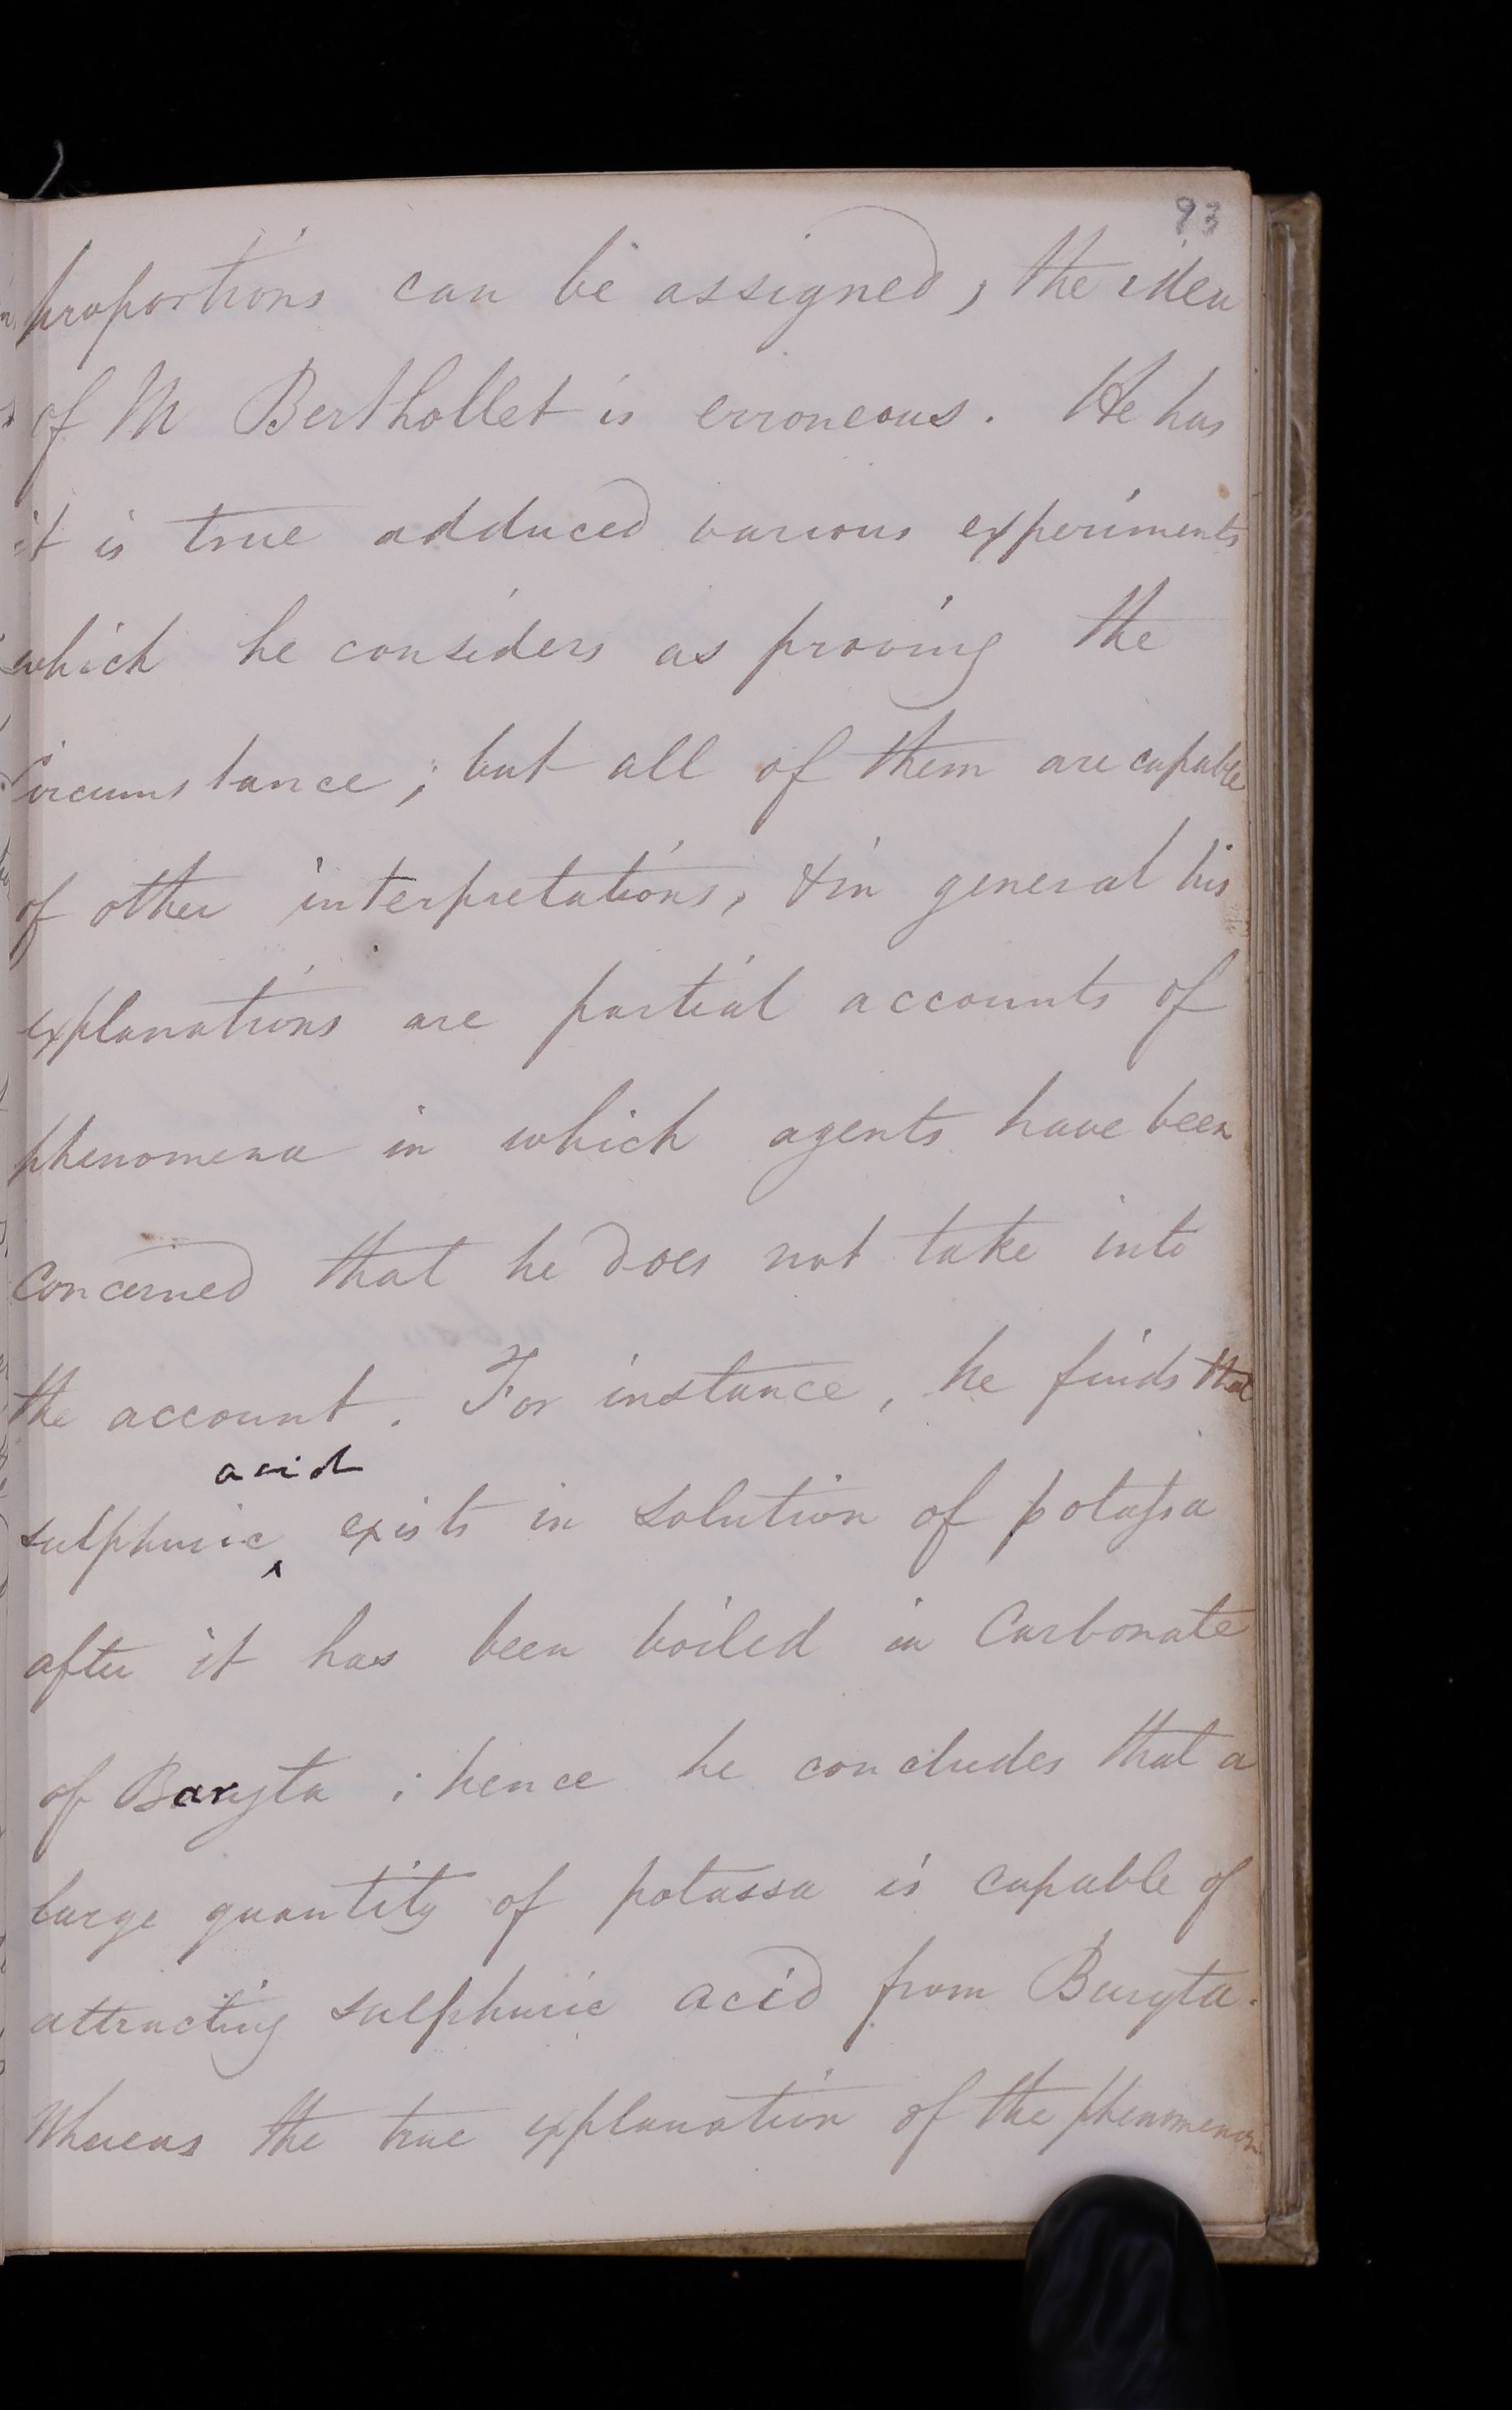 93
proportions can be assigned, the idea
of M Berthollet is erroneous. He has
it is true adduced various experiments
which he considers as proving the
circumstance; but all of them are capable
of other interpretations, & in general his
explanations are partial accounts of
phenomena in which agents have been
concerned that he does not take into
the account. For instance, he finds that
acid
sulphuric ^ exists in solution of potassa
after it has been boiled in Carbonate
of Baryta; hence he concludes that a
large quantity of potassa is capable of
attracting sulphuric acid from Baryta.
Whereas the true explanation of the phenomenon